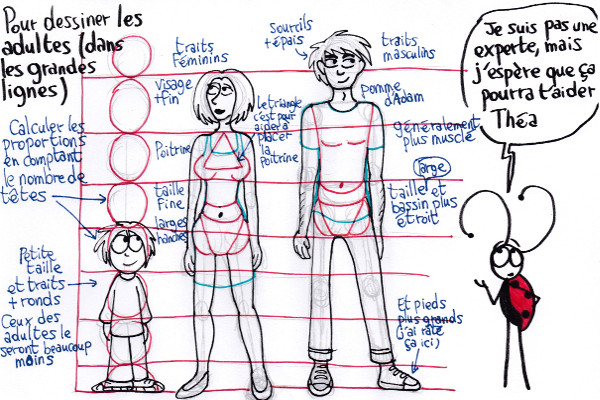 Pour dessiner les
adultes (dans
les grandes
lignes)
Calculer les
proportions
en comptant
le nombre de
têtes
Petite
taille
et traits
+ ronds
Ceux des
adultes le
seront beaucoup
moins
traits
féminins
Visage
+ fin
Poitrine
taille
fine
larges
hanches
Le triangle
c'est pour
aider à
placer
la
poitrine
Sourcils
+ épais
traits
masculins
pomme
d'Adam
généralement
plus musclé
large
taille et
bassin plus
étroit
Et pieds
plus grands
(j'ai raté
ça ici)
Je suis pas une
experte, mais
j'espère que ça
pourra t'aider
Théa